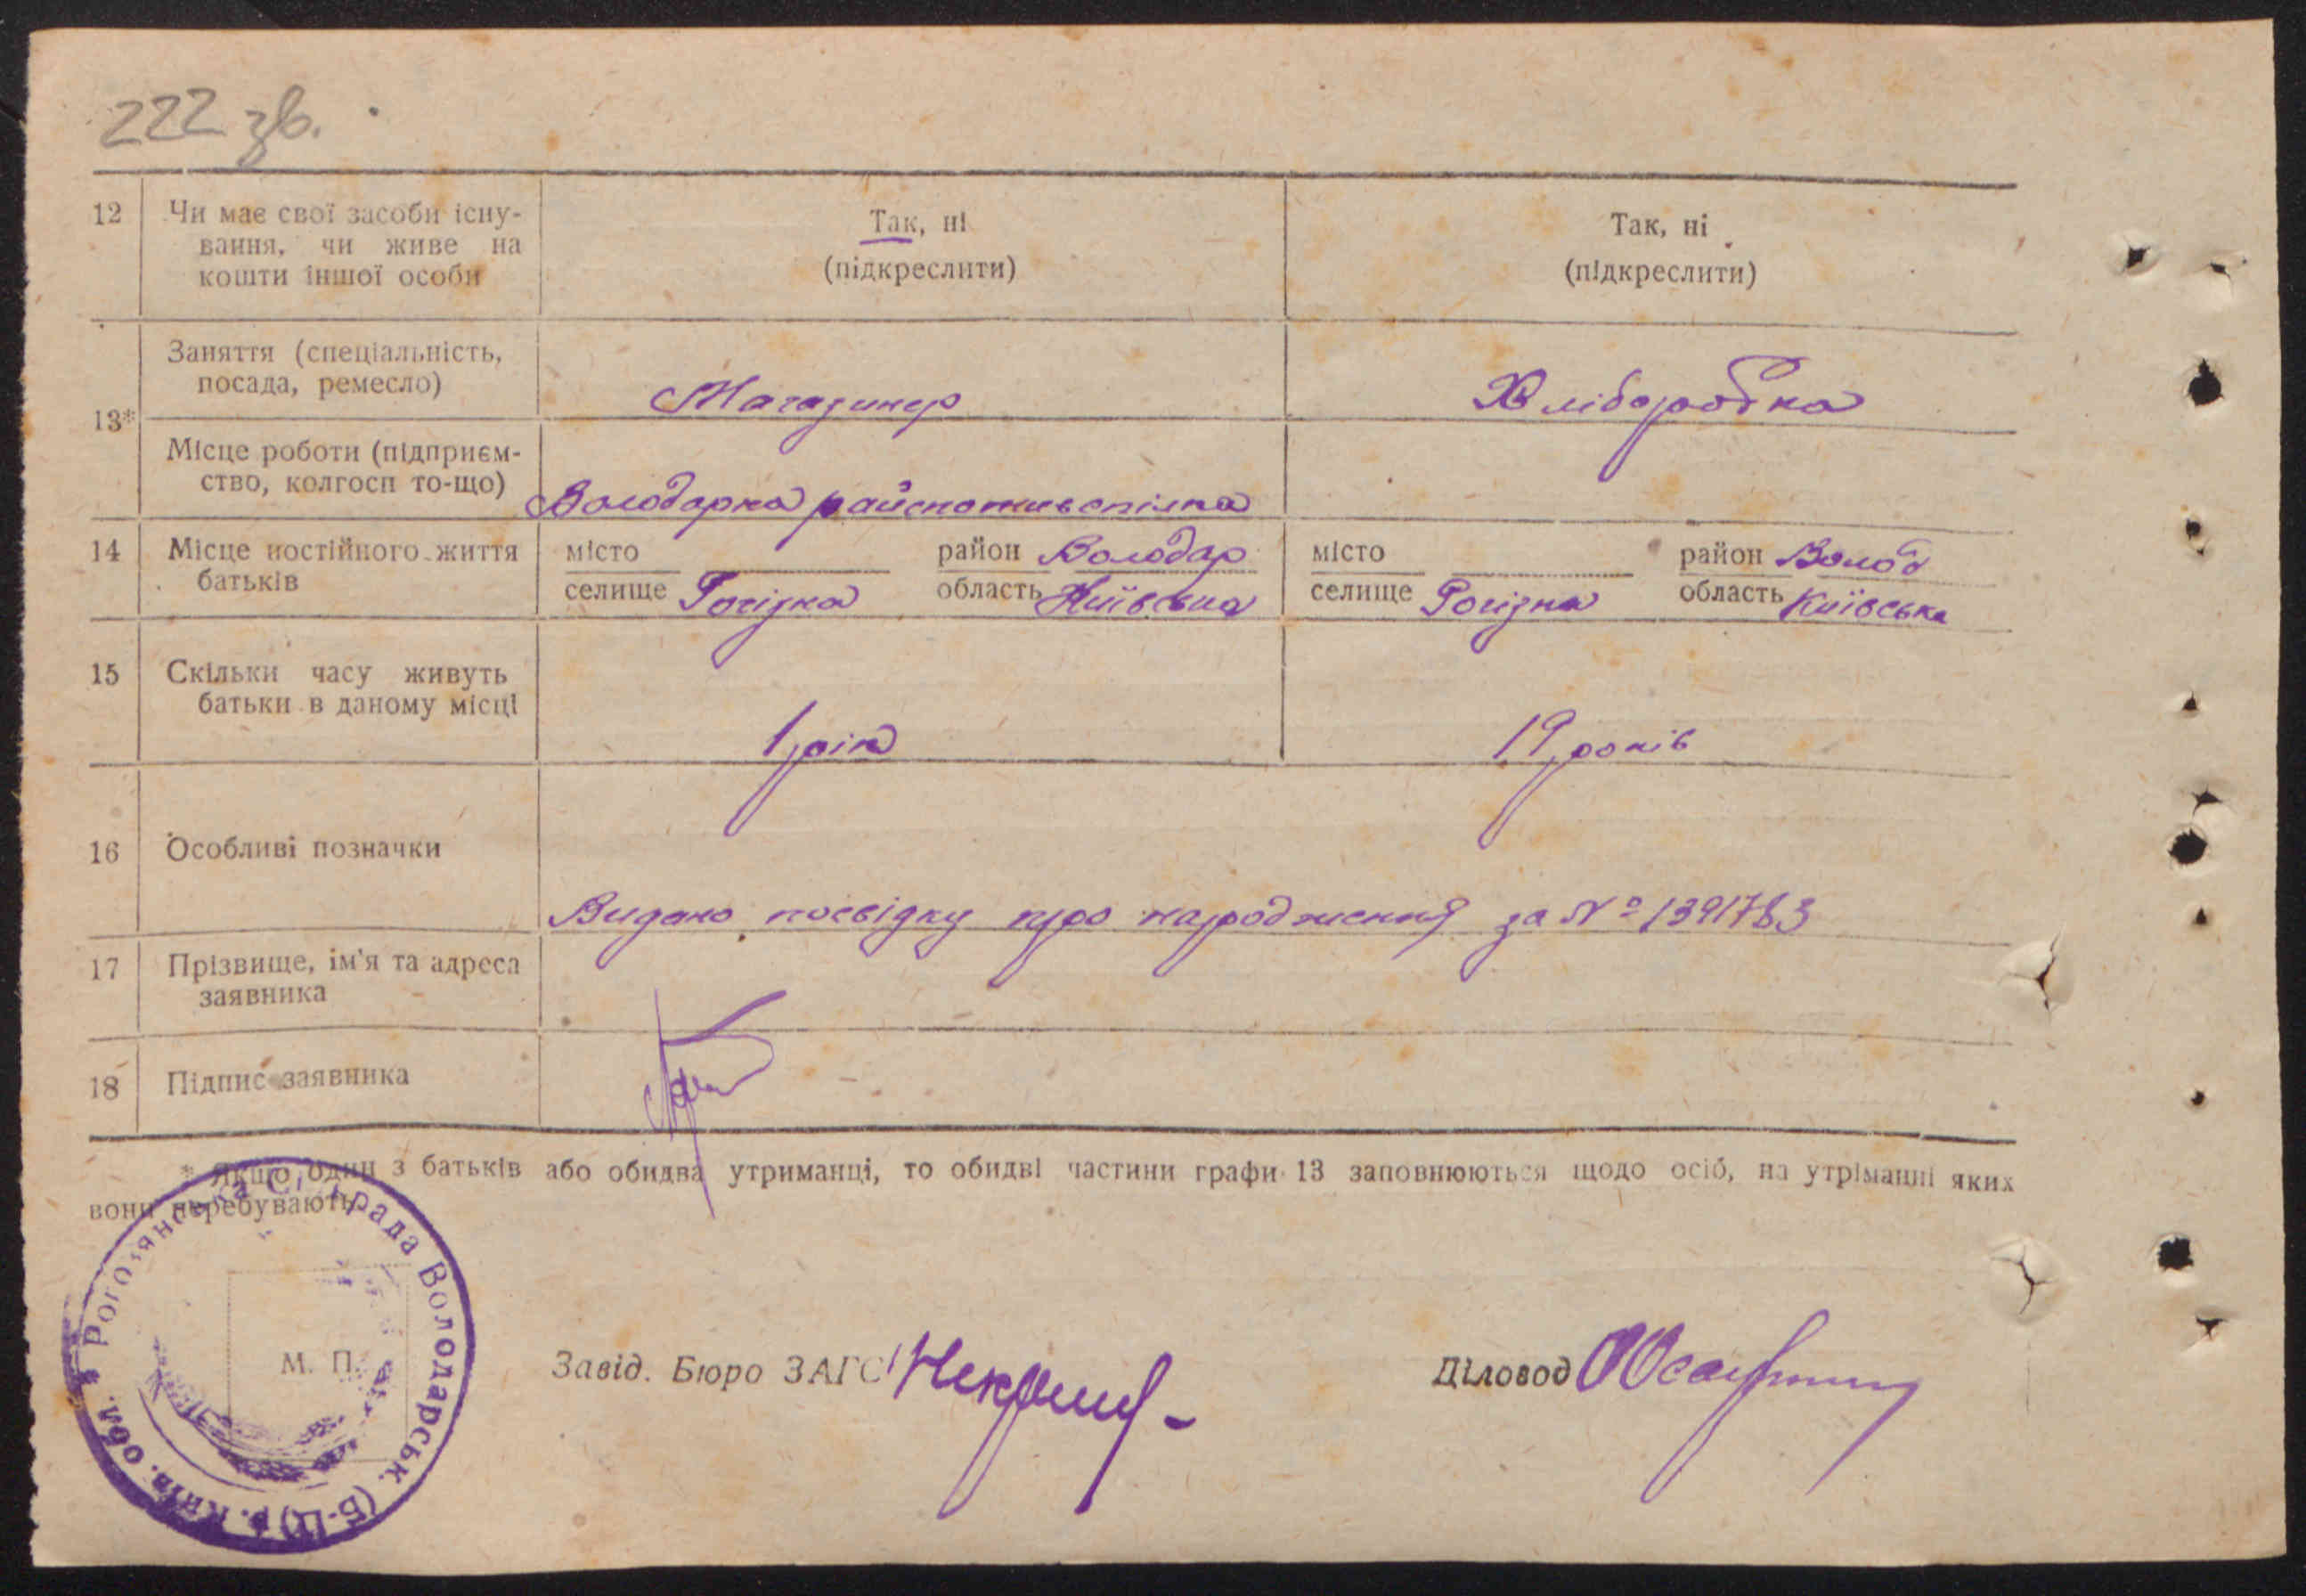 222 зв.
12 Чи має свої засоби існу-
вання, чи живе на
кошти іншої особи
Так, ні
(підкреслити)
Так, ні
(підкреслити)
13*
Заняття (спеціальність,
посада, ремесло)
Магазинер
Хлібаробка
Місце роботи (підприєм-
ство, колгосп то-що)
Володарка райспоживспілка
14 Місце постійного життя
батьків
місто район Володар
селище Рогізна область Київська
місто район Волод
селище Рогізна область Київська
15 Скільки часу живуть
батьки в даному місці
1 рік
19 років
16 Особливі позначки
Видано посвідку про народження за № 1391783
17 Прізвище, ім'я та адреса
заявника
18 Підпис заявника
* Якщо один з батьків або обидва утриманці, то обидві частини графи 13 заповнюються щодо осіб, на утріманні яких
вони перебувають.
Рогозянська Сільрада Володарськ. (Б-Ц) р. Київ. обл.
М. П.
Завід. Бюро ЗАГС
Діловод